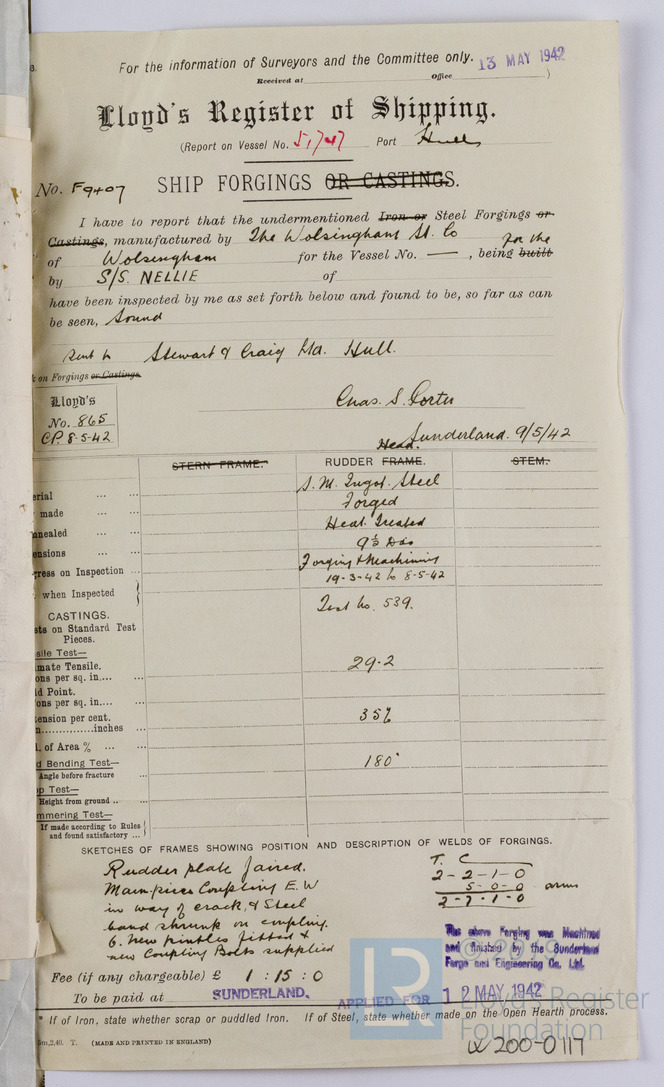 For the information of Surveyors and the Committee only.
13 MAY 1942
Received at Office )
Lloyd's Register of Shipping.
(Report on Vessel No. 51747 Port Hull
No. F9407
SHIP FORGINGS OR CASTINGS.
I have to report that the undermentioned Iron or Steel Forgings or
Castings, manufactured by The Wolsingham St. Co
of Wolsingham for the Vessel No. — , being built for the
by S/S. NELLIE of
have been inspected by me as set forth below and found to be, so far as can
be seen, Sound
Sent to Stewart & Craig Ltd. Hull.
on Forgings or Castings.
Lloyd's
No. 865
CP. 8-5-42
Chas. S. Porter
Sunderland. 9/5/42
STERN FRAME. RUDDER FRAME. Head. STEM.
erial ... ... S. M. Ingot Steel
made ... Forged
nnealed ... ... Heat Treated
ensions ... ...
gress on Inspection ... Forging & Machining
when Inspected 19-3-42 to 8-5-42
Test No. 539.
CASTINGS.
ts on Standard Test
Pieces.
sile Test—
mate Tensile.
ons per sq. in.... ... 29.2
d Point.
ons per sq. in.... ...
ension per cent.
n..............inches ... 35%
. of Area % ... ...
d Bending Test— 180°
Angle before fracture ...
p Test—
Height from ground .. ...
mmering Test—
If made according to Rules
and found satisfactory ...
SKETCHES OF FRAMES SHOWING POSITION AND DESCRIPTION OF WELDS OF FORGINGS.
Rudder plate faired.
Main piece Coupling E.W
in way of crack, & Steel
band shrunk on coupling.
6. New pintles fitted &
new Coupling Bolts supplied
T. C
2-2-1-0
5-0-0 arms
2-7-1-0
The above Forging was Machined
and finished by the Sunderland
Forge and Engineering Co. Ltd.
Fee (if any chargeable) £ 1 : 15 : 0
To be paid at SUNDERLAND. APPLIED FOR 12 MAY 1942
* If of Iron, state whether scrap or puddled Iron. If of Steel, state whether made on the Open Hearth process.
m,2,40. T. (MADE AND PRINTED IN ENGLAND)
LR
Lloyd's Register
Foundation
W200-0117